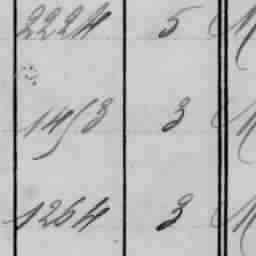 2224 5 M
1453 3 M
1264 3 M